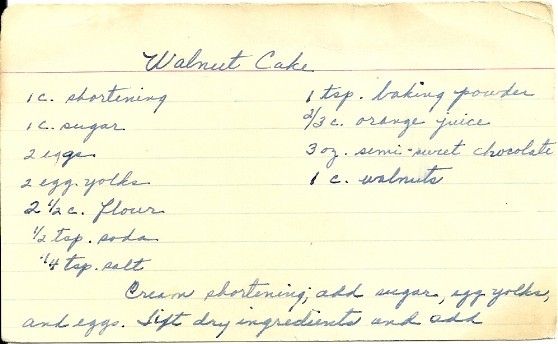 Walnut Cake
1 c. shortening
1 c. sugar
2 eggs
2 egg yolks
2 1/2 c. flour
1/2 tsp. soda
1/4 tsp. salt
1 tsp. baking powder
2/3 c. orange juice
3 oz. semi-sweet chocolate
1 c. walnuts
Cream shortening, add sugar, egg yolks,
and eggs. Sift dry ingredients and add